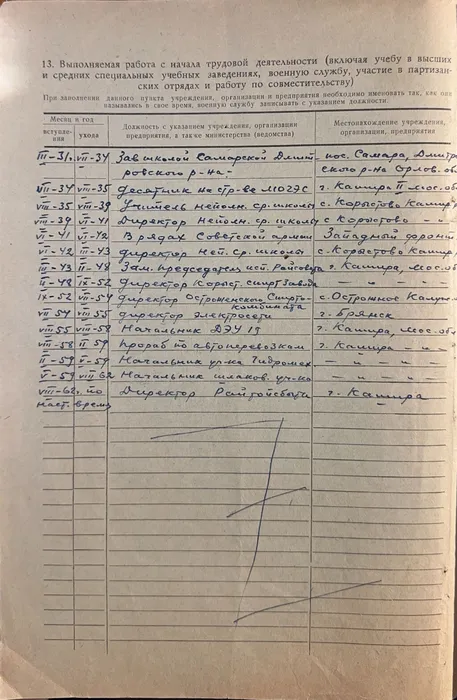 13. Выполняемая работа с начала трудовой деятельности (включая учебу в высших
и средних специальных учебных заведениях, военную службу, участие в партизан-
ских отрядах и работу по совместительству)
При заполнении данного пункта учреждения, организации и предприятия необходимо именовать так, как они
назывались в свое время, военную службу записывать с указанием должности.
Месяц и год
вступления ухода Должность с указанием учреждения, организации предприятия, а также министерства (ведомства) Местонахождение учреждения, организации, предприятия
III-31г. VII-34 Зав школой Самарской Дмит- пос. Самара, Дмитро
ровского р-на- ского р-на Орлов. об
VII-34 VIII-35 десятник на стр-ве МОГЭС г. Кашира II мос. об
VIII-35 VIII-39 Учитель неполн. ср. школы с. Корыстово Кашир
VIII-39 VI-41 Директор Неполн. ср. школы с Корыстово - " -
VI-41 VI-42 В рядах Советской армии Западный фронт
VI-42 III-43 директор Неп. ср. школы с. Корыстово Кашир.
III-43 II-48 Зам. председателя исп. Райсовета г. Кашира, мос. об
II-48 IX-52 Директор Корыст. спиртзавода
IX-52 VII-54 директор Острошенского Спирто- с. Острожное Калуж.
комбината
VII 54 VIII 55 директор электросети г. Брянск
VIII 55 VIII-58 Начальник ДЭУ 19 г. Кашира, мос. об
VIII-58 II 59 прораб по автоперевозкам г. Кашира - " -
II-59 V-59 Начальник уч-ка Гидромех - " - " -
V-59 VIII 62 Начальник шлаков. уч-ка - " - " -
VIII-62г. по Директор Райтопсбыта г. Кашира
наст. время